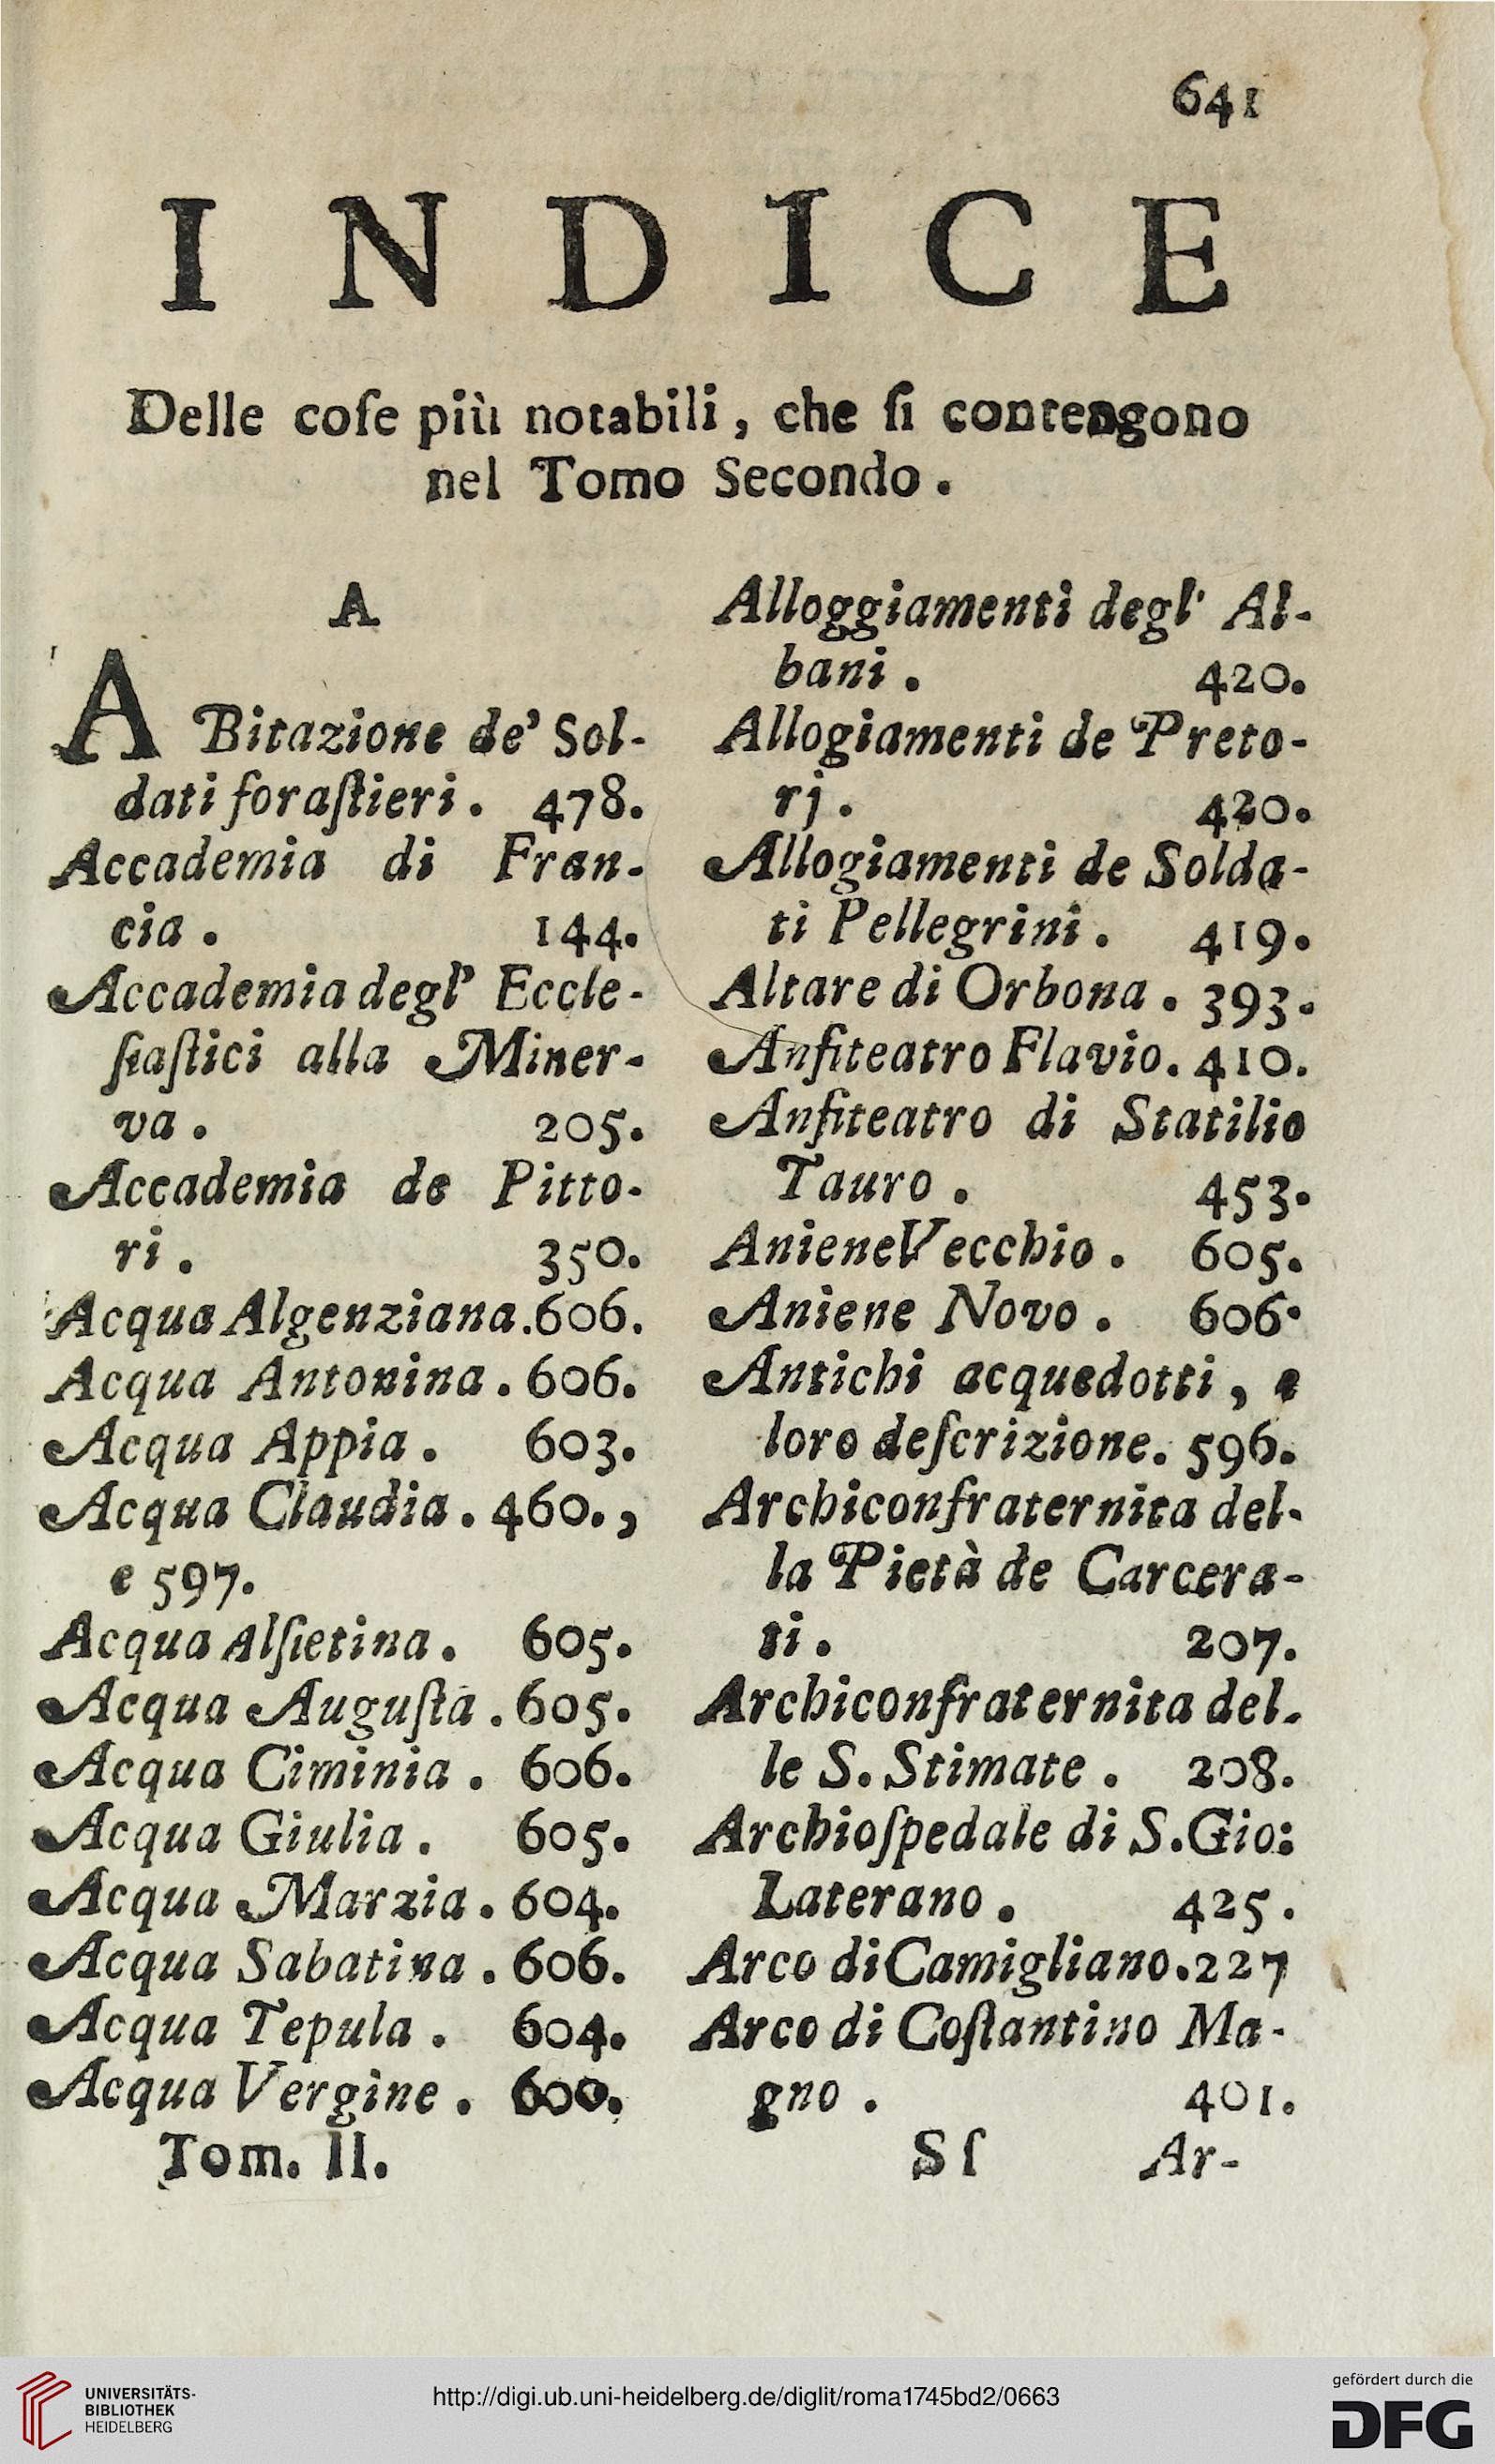 641
INDICE
Delle coſe più notabili, che ſi contengono
nel Tomo Secondo.
A
ABitazione de' Sol-
dati foraſtieri. 478.
Accademia di Fran-
cia. 144.
Accademia degl' Eccle-
ſiaſtici alla Miner-
va. 205.
Accademia de Pitto-
ri. 350.
Acqua Algenziana. 606.
Acqua Antonina. 606.
Acqua Appia. 603.
Acqua Claudia. 460.,
e 597.
Acqua Alſietina. 605.
Acqua Auguſta. 605.
Acqua Ciminia. 606.
Acqua Giulia. 605.
Acqua Marzia. 604.
Acqua Sabatina. 606.
Acqua Tepula. 604.
Acqua Vergine. 600.
Alloggiamenti degl' Al-
bani. 420.
Allogiamenti de Preto-
rj. 420.
Allogiamenti de Solda-
ti Pellegrini. 419.
Altare di Orbona. 393.
Anfiteatro Flavio. 410.
Anfiteatro di Statilio
Tauro. 453.
Aniene Vecchio. 605.
Aniene Novo. 606.
Antichi acquedotti, e
loro deſcrizione. 596.
Archiconfraternita del-
la Pietà de Carcera-
ti. 207.
Archiconfraternita del-
le S. Stimate. 208.
Archioſpedale di S. Gio:
Laterano. 425.
Arco di Camigliano. 227
Arco di Coſtantino Ma-
gno. 401.
Tom. II. Sſ Ar-
UNIVERSITÄTS-
BIBLIOTHEK
HEIDELBERG
http://digi.ub.uni-heidelberg.de/diglit/roma1745bd2/0663
gefördert durch die
DFG